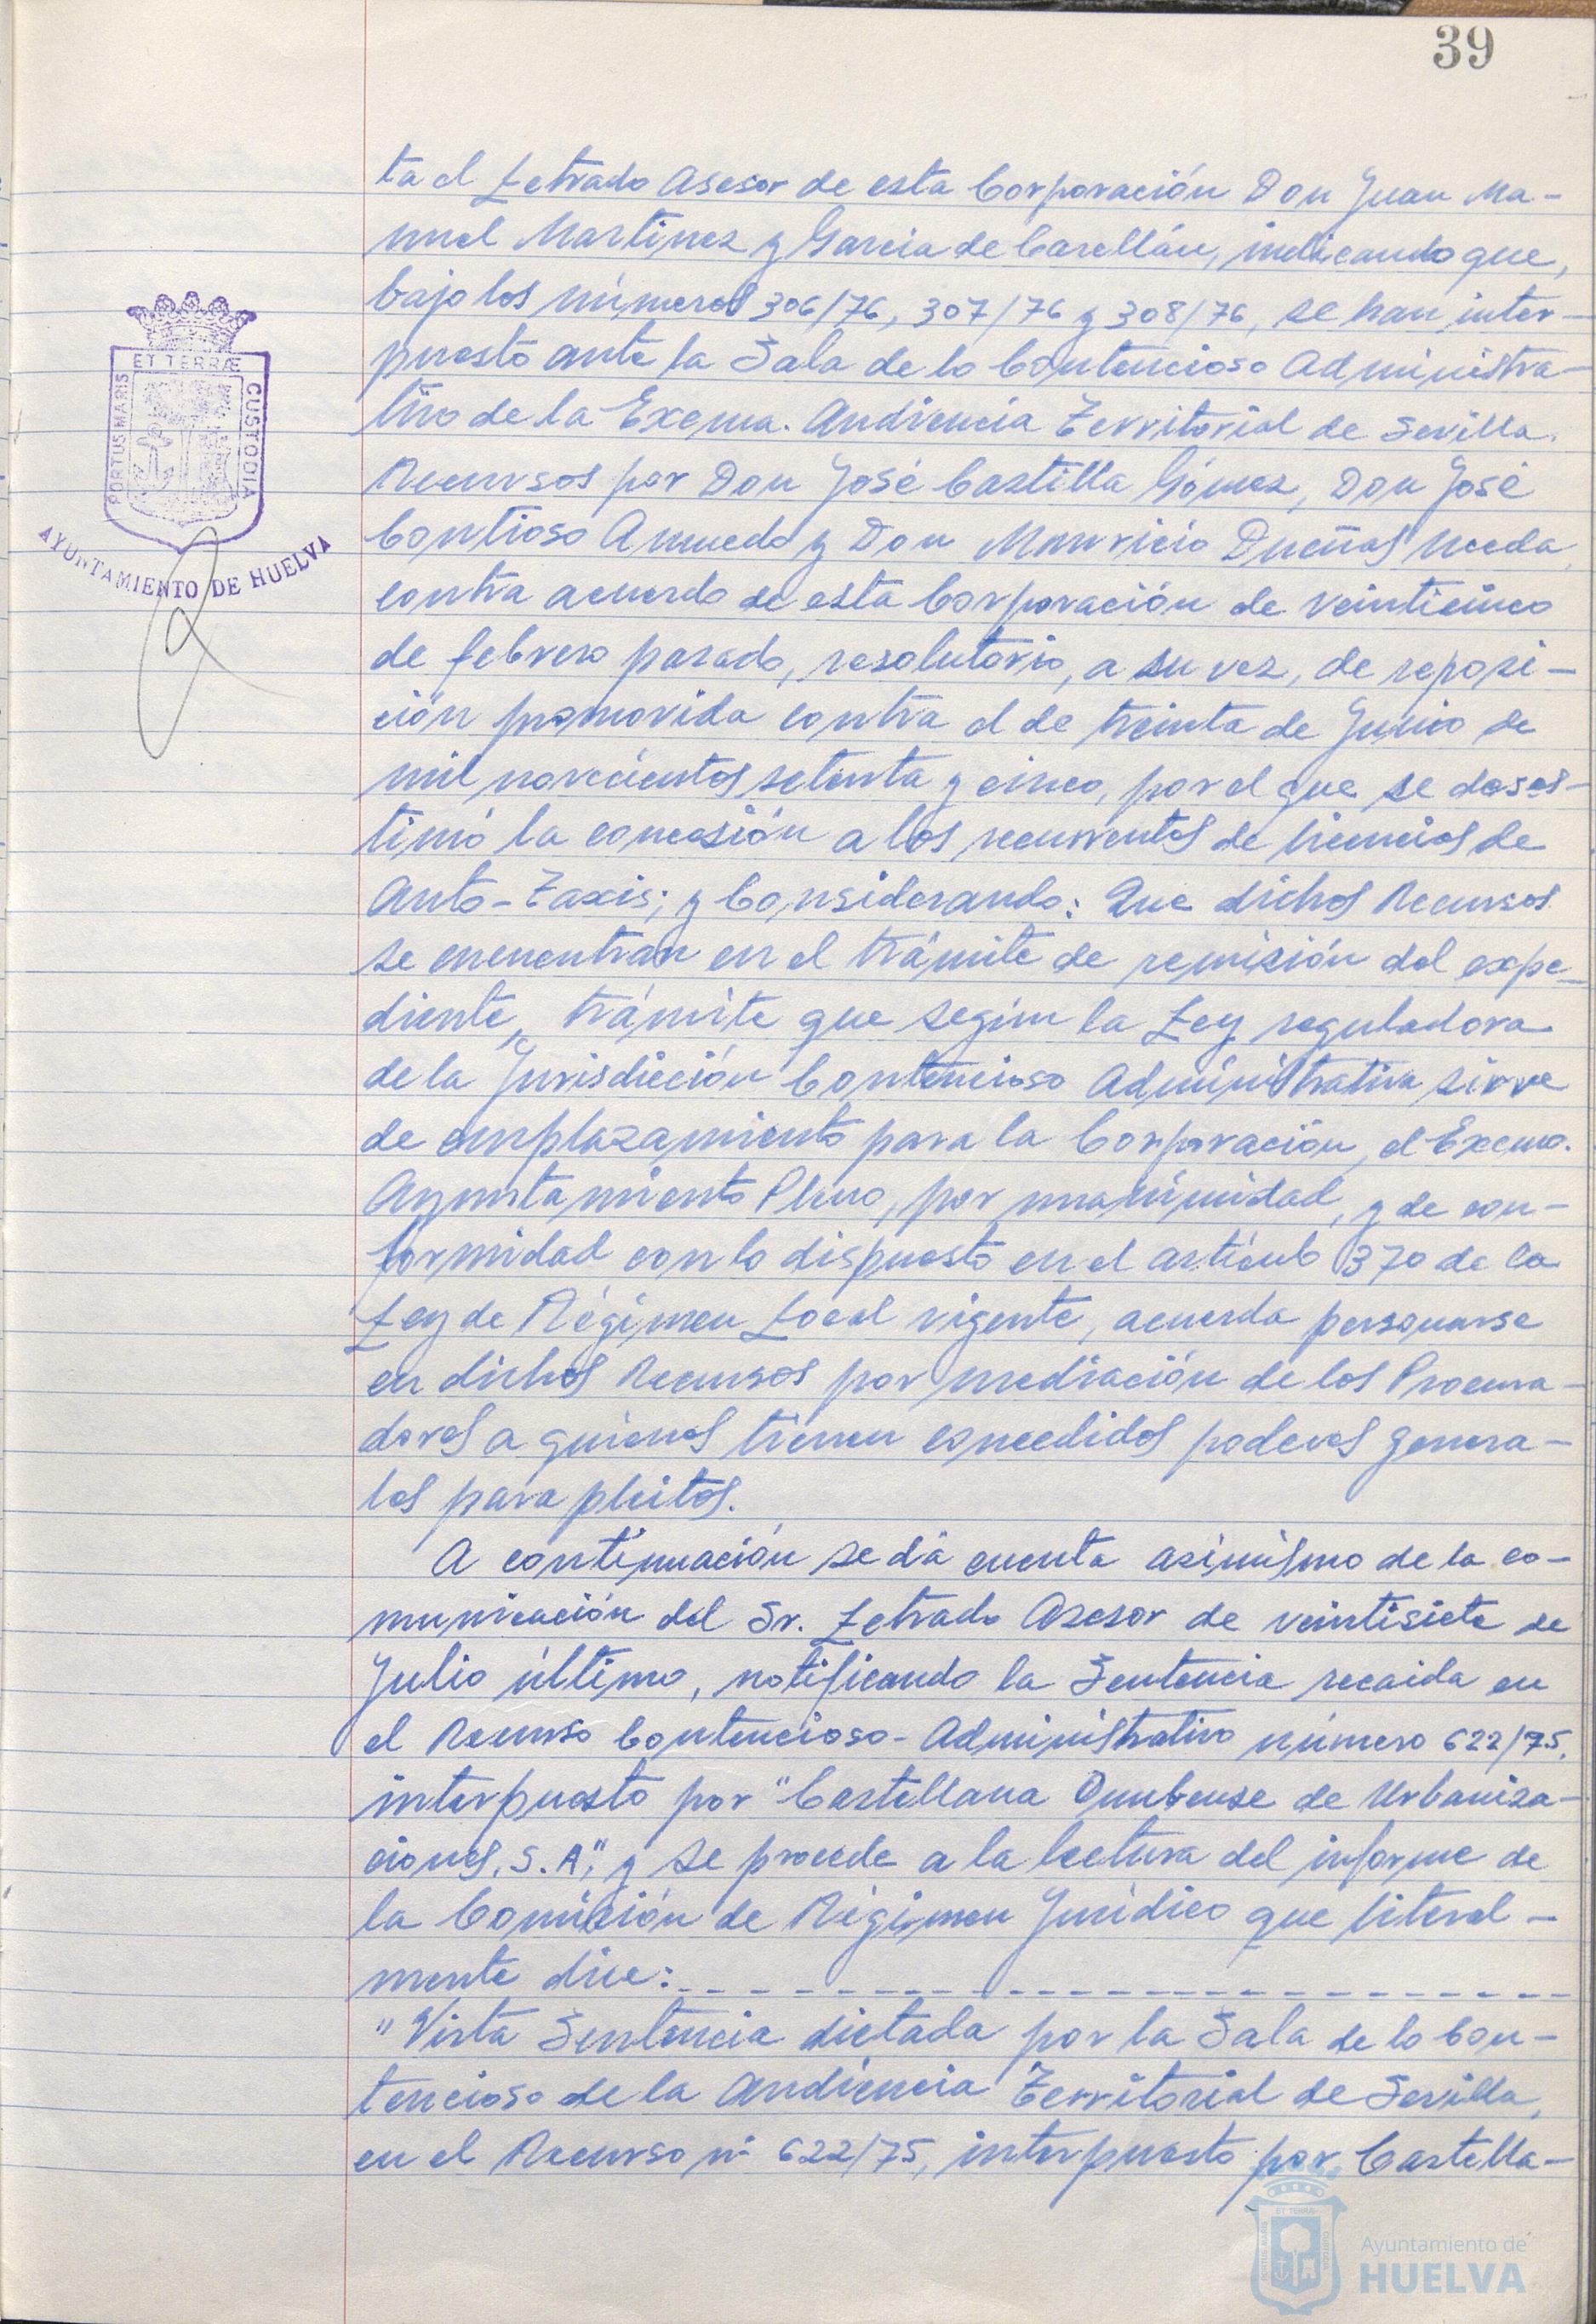 39
ta el Letrado Asesor de esta Corporación Don Juan Ma-
nuel Martinez y Garcia de Casellán, indicando que,
bajo los números 306/76, 307/76 y 308/76, se han inter-
puesto ante la Sala de lo Contencioso Administra-
tivo de la Excma. Audiencia Territorial de Sevilla.
Recursos por Don José Castilla Gómez, Don José
Contioso Anuedo y Don Mauricio Dueñas Uceda,
contra acuerdo de esta Corporación de veinticinco
de febrero pasado, resolutorio, a su vez, de reposi-
ción promovida contra el de treinta de Junio de
mil novecientos setenta y cinco, por el que se deses-
timó la concesión a los recurrentes de licencias de
Auto-Taxis; y Considerando: Que dichos Recursos
se encuentran en el trámite de remisión del expe-
diente, trámite que según la Ley reguladora
de la Jurisdicción Contencioso Administrativa sirve
de emplazamiento para la Corporación, el Excmo.
Ayuntamiento Pleno, por unanimidad, y de con-
formidad con lo dispuesto en el artículo 370 de la
Ley de Régimen Local vigente, acuerda personarse
en dichos Recursos por mediación de los Procura-
dores a quienes tienen concedidos poderes genera-
les para pleitos.
A continuación se dá cuenta asimismo de la co-
municación del Sr. Letrado Asesor de veintisiete de
Julio último, notificando la Sentencia recaida en
el Recurso Contencioso-Administrativo número 622/75,
interpuesto por "Castellana Onubense de Urbaniza-
ciones, S.A", y se procede a la lectura del informe de
la Comisión de Régimen Jurídico que literal-
mente dice:
"Vista Sentencia dictada por la Sala de lo Con-
tencioso de la Audiencia Territorial de Sevilla,
en el Recurso nº 622/75, interpuesto por Castella-
PORTUS MARIS
ET TERRÆ
CUSTODIA
AYUNTAMIENTO DE HUELVA
Ayuntamiento de
HUELVA